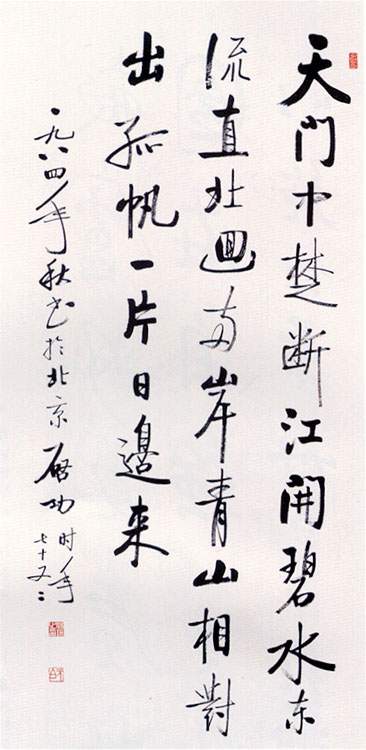 天門中楚断江開碧水东
流直北迴两岸青山相對
出孤帆一片日邊来
一九八四年秋书於北京 啓功 时年
七十又二